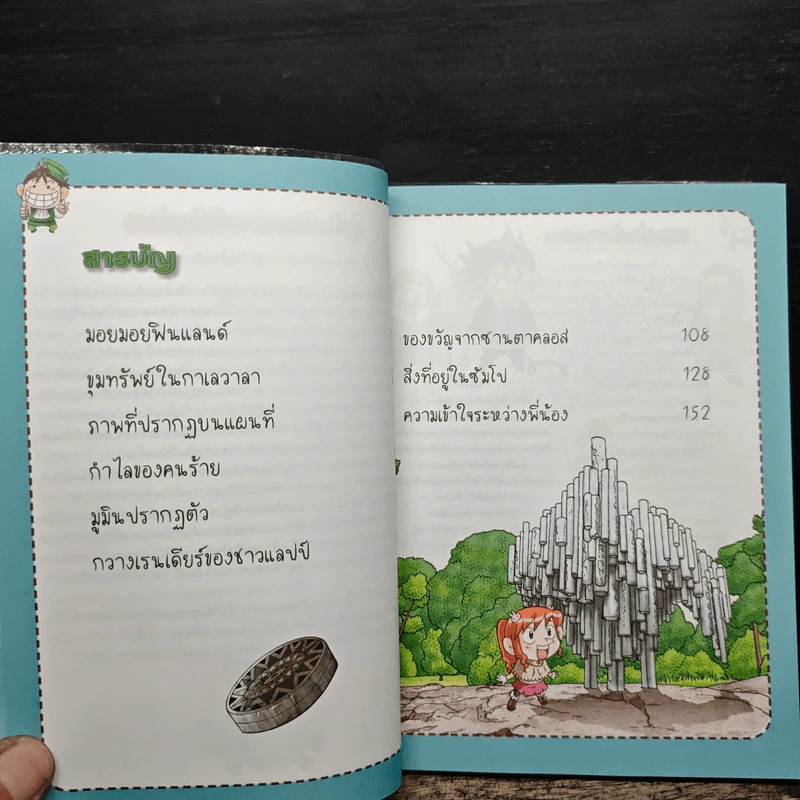 สารบัญ
มอยมอยฟินแลนด์
ขุมทรัพย์ในกาเลวาลา
ภาพที่ปรากฏบนแผนที่
กำไลของคนร้าย
มูมินปรากฏตัว
กวางเรนเดียร์ของชาวแลปป์
ของขวัญจากซานตาคลอส 108
สิ่งที่อยู่ในซัมโป 128
ความเข้าใจระหว่างพี่น้อง 152